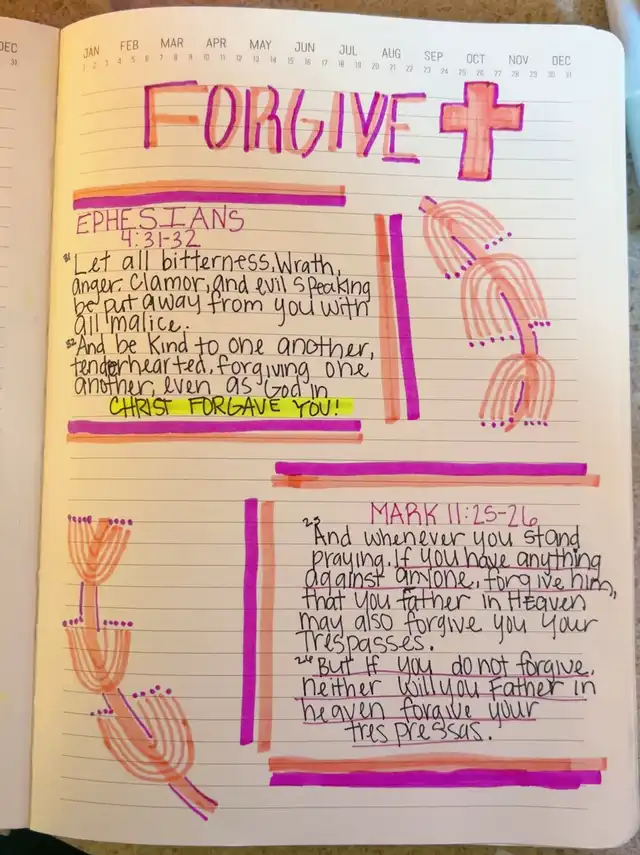 DEC
31
JAN FEB MAR APR MAY JUN JUL AUG SEP OCT NOV DEC
1 2 3 4 5 6 7 8 9 10 11 12 13 14 15 16 17 18 19 20 21 22 23 24 25 26 27 28 29 30 31
FORGIVE
EPHESIANS
4:31-32
31 Let all bitterness, Wrath,
anger. Clamor, and evil speaking
be put away from you with
all malice.
32 And be kind to one another,
tenderhearted, forgiving one
another, even as God in
CHRIST FORGAVE YOU!
MARK 11:25-26
25 And whenever you stand
praying. If you have anything
against anyone, forgive him,
that you father in Heaven
may also forgive you your
Trespasses.
26 But if you do not forgive,
neither will you Father in
heaven forgive your
trespressas.